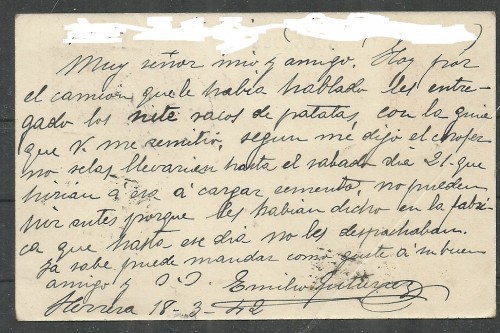 Muy señor mio y amigo. Hoy por
el camion que le habia hablado les entre-
gado los siete sacos de patatas, con la guia
que V. me remitió, segun me dijo el chofer
no selas llevarien hasta el sabado dia 21-que
hirian á esa á cargar cemento, no pueden
por antes porque les habian dicho en la fabri-
ca que hasta ese dia no les despachaban.
Ya sabe puede mandar como guste á su buen
amigo y S. S. Emilio Gutierrez
Herrera 18-3-42